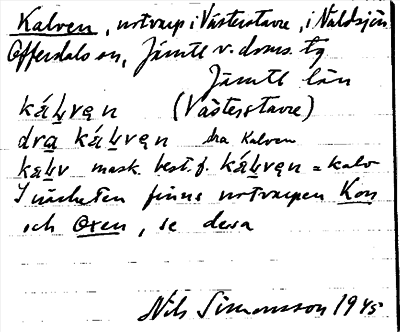 Kalven, notvarp i Västerstavre, i Näldsjön
Offerdals sn, Jämtl. v. doms. tg
Jämtl län
káḷvęn (Västerstavre)
dra káḷvęn dra Kalven
kaḷv mask. best. f. káḷvęn = kalv
I närheten finns notvarpen Kon
och Oxen, se dessa
Nils Simonsson 1945